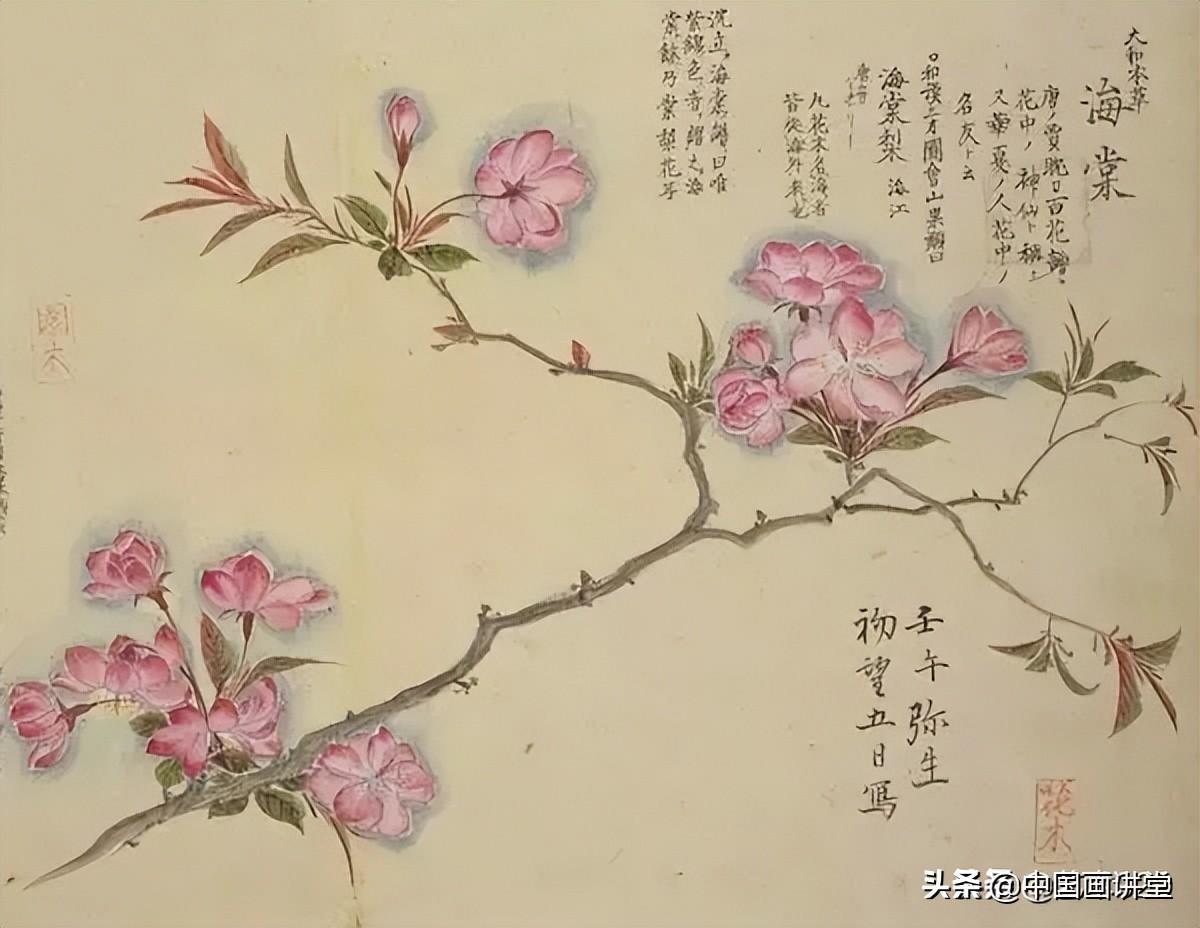 大和本草
海棠
唐ノ賈耽曰百花譜
花中ノ神仙ト稱ス
又華夏ノ人花中ノ
名友ト云
○和漢三才圖會山果類曰
海棠梨 海江
唐音
凡花木名海者
皆從海外來也
沈立海棠譜曰唯
紫錦色者謂之海
棠餘乃棠梨花耳
壬午弥生
初望五日寫
头条 @中国画讲堂